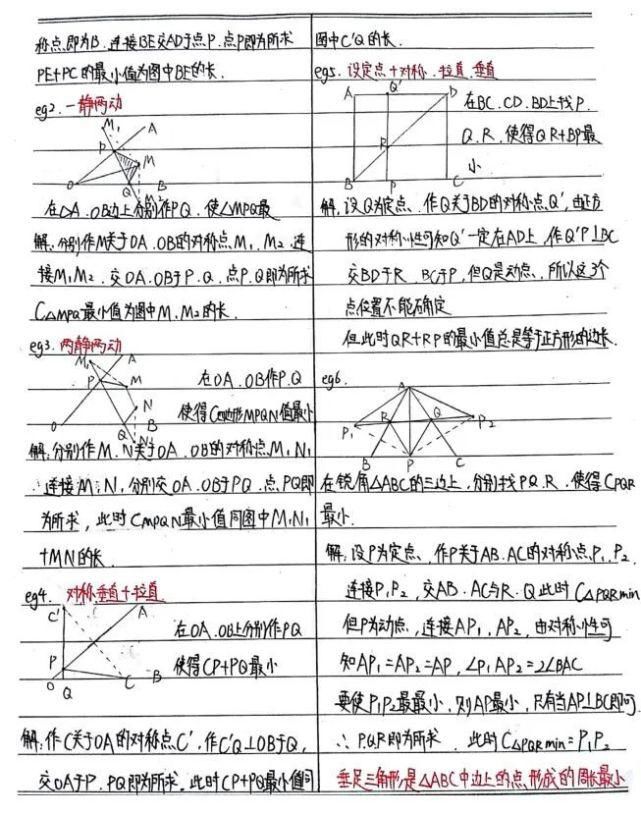 称点即为B.连接BE交AD于点P.点P即为所求
PE+PC的最小值为图中BE的长.
eg2.一静两动
M₁
A
P
M
O
Q
B
在OA.OB边上分别作PQ.使△MPQ最
解:分别作M关于OA.OB的对称点M₁、M₂.连
接M₁M₂.交OA.OB于P.Q.点P.Q即为所求
C△MPQ最小值为图中M₁M₂的长.
eg3.两静两动
M₁
A
P
M
N
O
Q
B
N₁
在OA.OB作P.Q
使得C四边形MPQN值最小
解:分别作M.N关于OA.OB的对称点M₁N₁
连接M₁N₁分别交OA.OB于PQ.点.PQ即
为所求,此时CMPQN最小值同图中M₁N₁
+MN的长.
eg4.对称.垂直+拉直
C'
A
P
O
Q
C
B
在OA.OB上分别作PQ
使得CP+PQ最小
解:作C关于OA的对称点C'.作C'Q⊥OB于Q,
交OA于P.PQ即为所求.此时CP+PQ最小值同
图中C'Q的长.
eg5.设定点+对称.拉直.垂直
A
Q'
D
R
B
P
C
在BC.CD.BD上找P.
Q.R.使得QR+RP最
小.
解:设Q为定点、作Q关于BD的对称点Q',由正方
形的对称性可知Q'一定在AD上.作Q'P⊥BC
交BD于R.BC于P,但Q是动点、所以这3个
点位置不能确定
但此时QR+RP的最小值总是等于正方形的边长.
eg6.
A
R
Q
P₁
P₂
B
P
C
在锐角△ABC的三边上,分别找PQ.R.使得CPQR
最小.
解:设P为定点、作P关于AB.AC的对称点P₁.P₂.
连接P₁P₂,交AB.AC与R.Q此时C△PQRmin
但P为动点、连接AP₁,AP₂,由对称性可
知AP₁=AP₂=AP,∠P₁AP₂=2∠BAC
要使P₁P₂最最小,则AP最小,只有当AP⊥BC即可
∴P.Q.R即为所求.此时C△PQRmin=P₁P₂
垂足三角形是△ABC中边上的点形成的周长最小